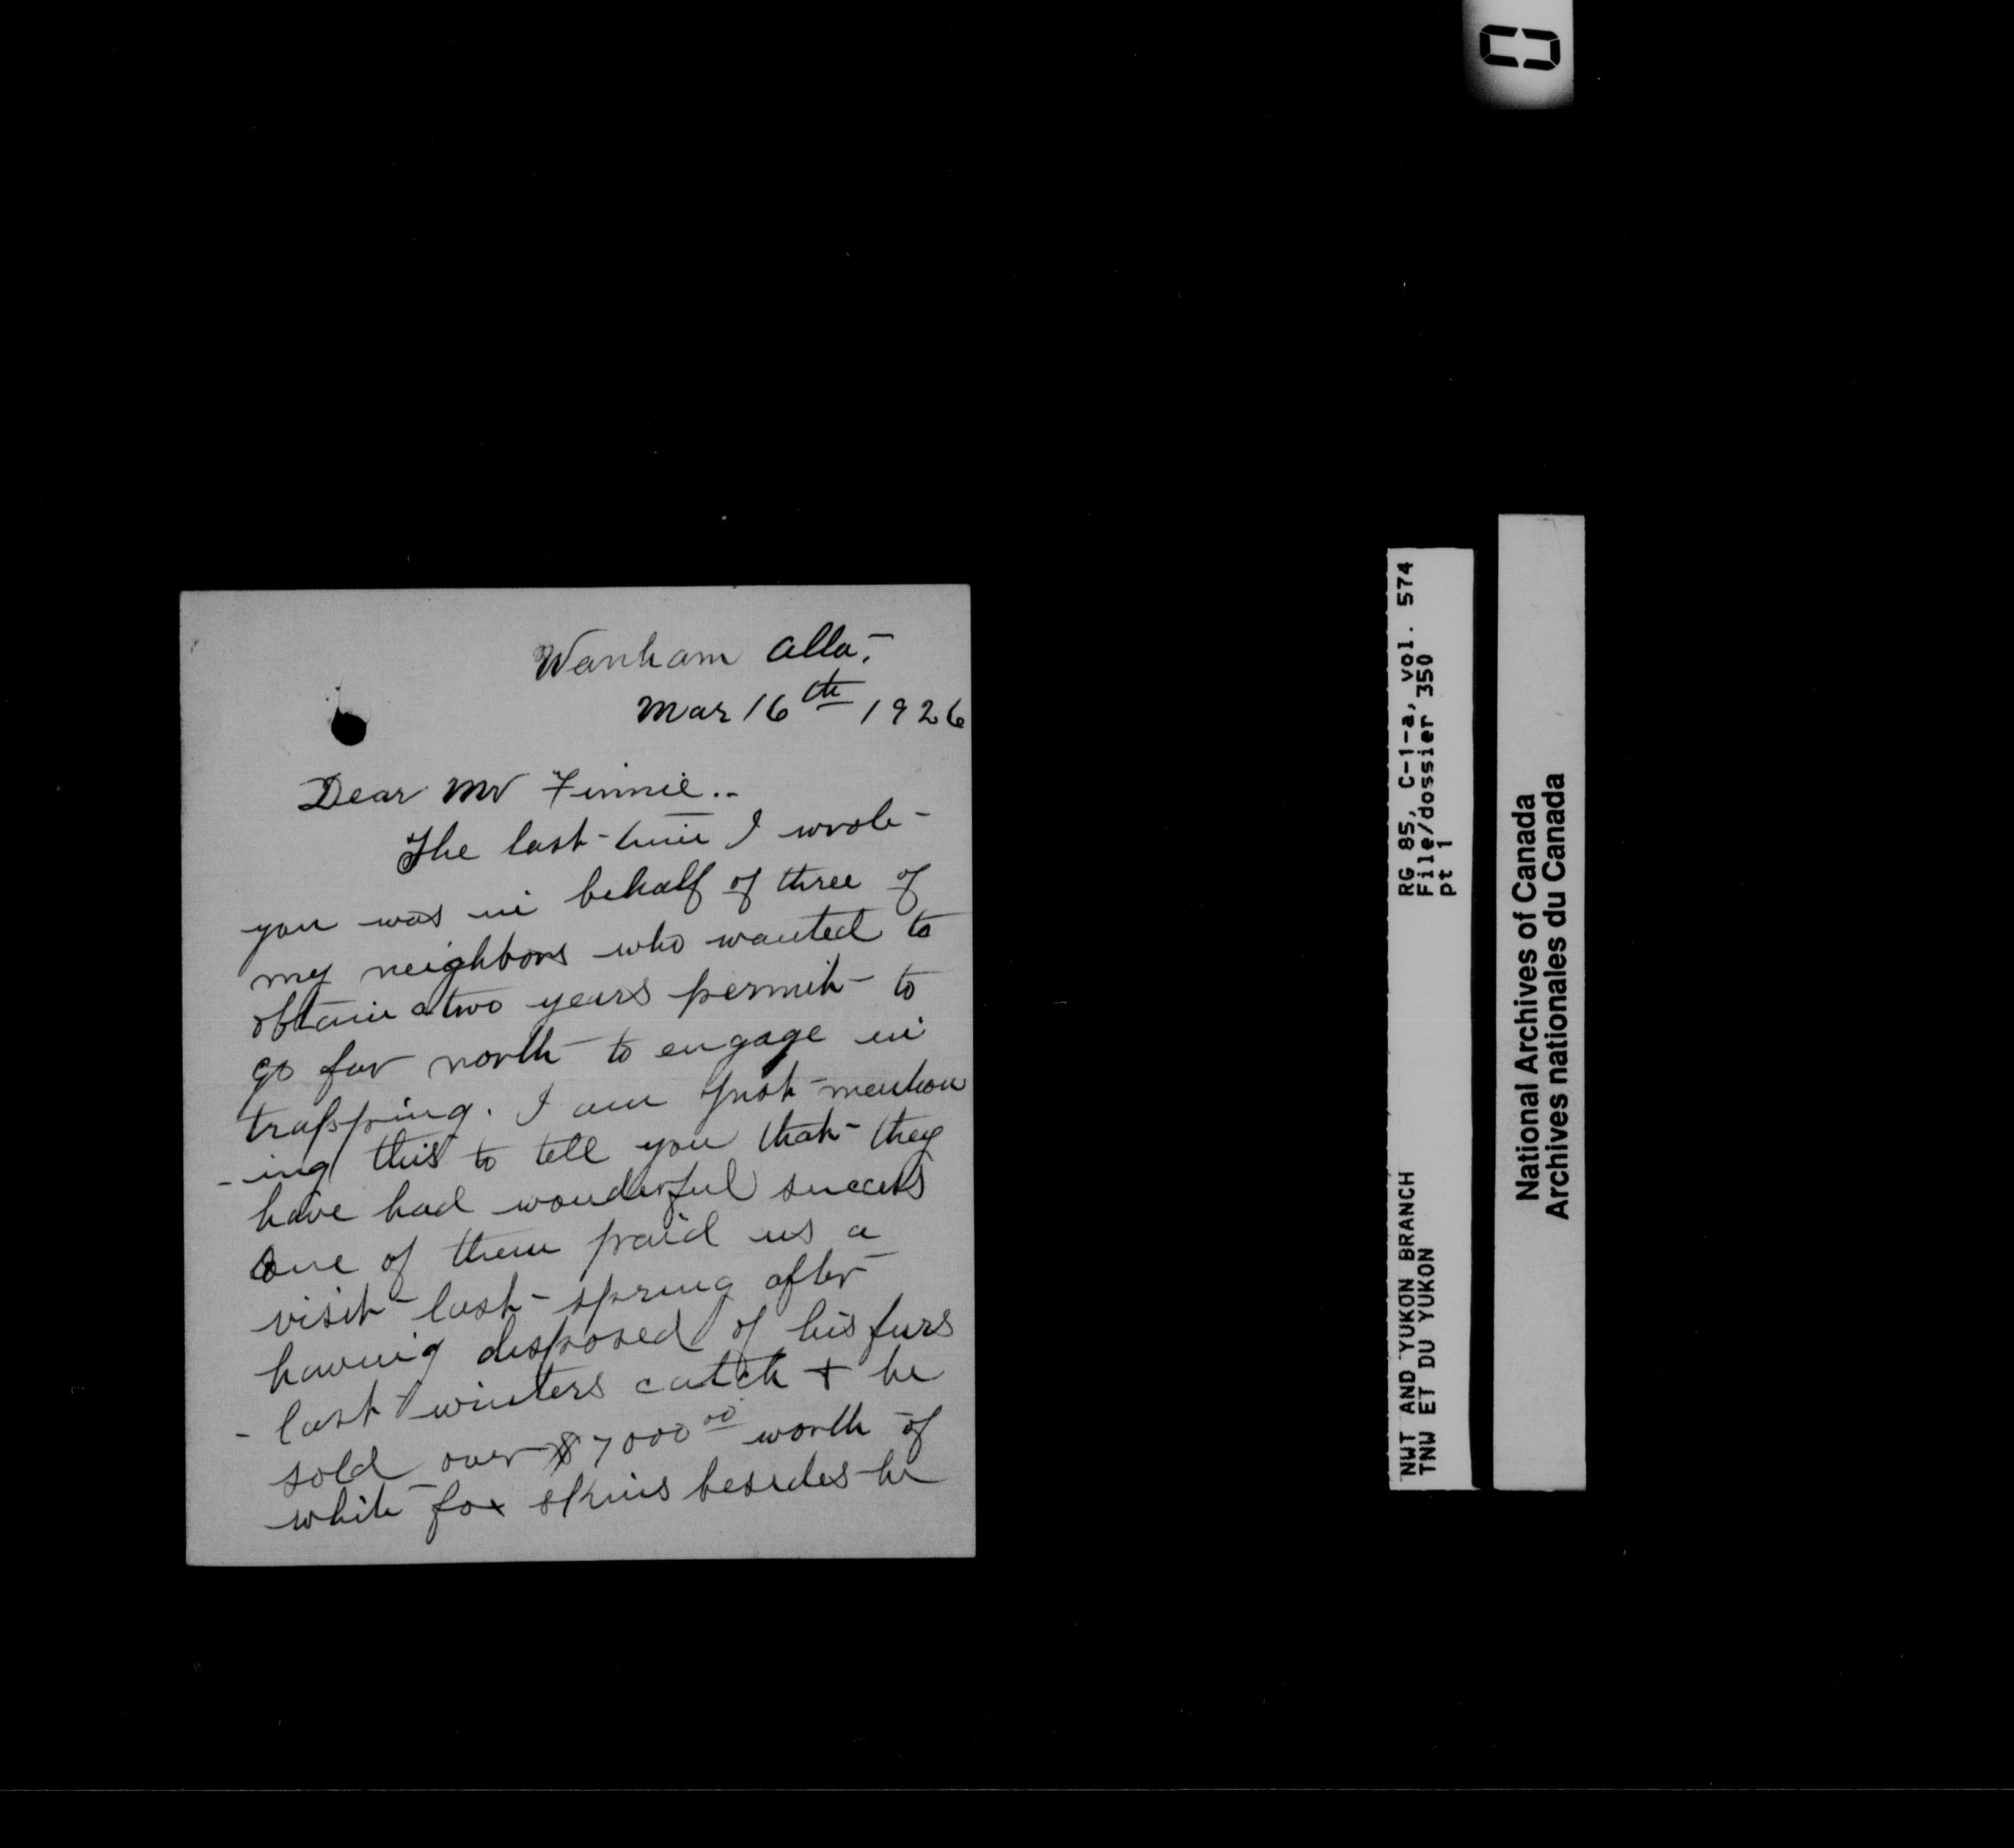 Wanham Alta,
Mar 16th 1926
Dear Mr Finnie..
The last time I wrote
you was in behalf of three of
my neighbors who wanted to
obtain a two years permit to
go far north to engage in
trapping. I am just mention
-ing this to tell you that they
have had wonderful success
One of them paid us a
visit last spring after
having disposed of his furs
- last winters catch + he
sold over $7000.00 worth of
white fox skins besides he
RG 85, C-1-a, vol. 574
File/dossier 350
pt 1
NWT AND YUKON BRANCH
TNW ET DU YUKON
National Archives of Canada
Archives nationales du Canada